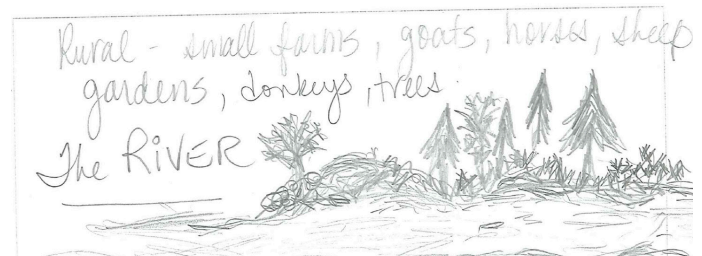 Rural - small farms, goats, horses, sheep
gardens, donkeys, trees.
The RIVER